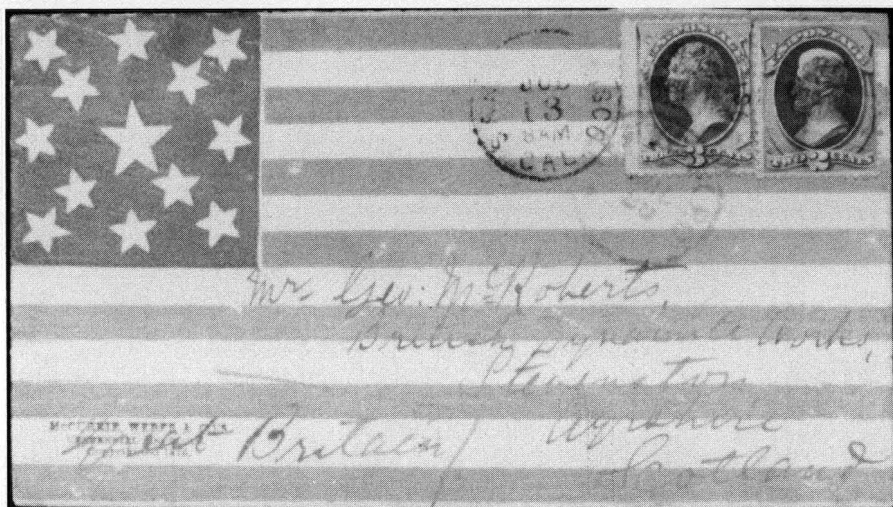 JUL
13
8 AM
CAL.
TWO CENTS
Mr. Geo: McRoberts,
British Dynamite Works,
Stevenston
Ayrshire
Scotland
Great Britain